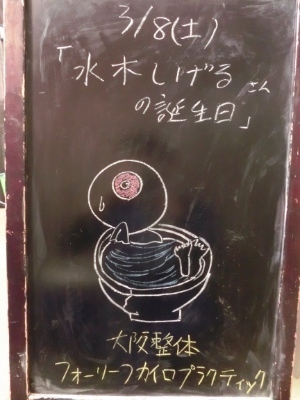 3/8(土)
「水木しげるさん
の誕生日」
大阪整体
フォーリーフカイロプラクティック